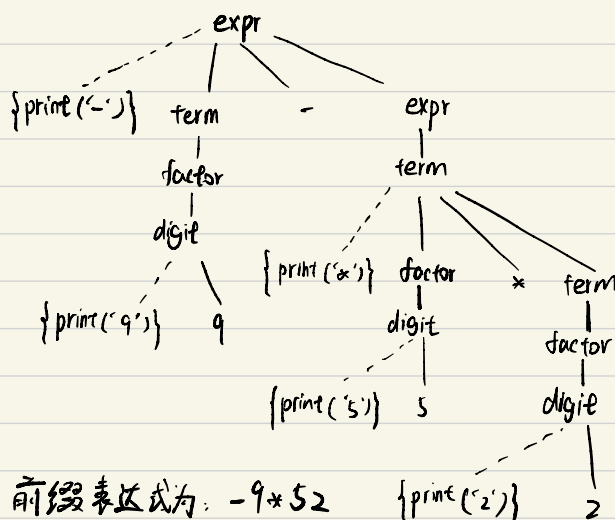 expr
{print('-')} term - expr
factor term
digit {print('*')} factor * term
{print('9')} 9 digit factor
{print('5')} 5 digit
前缀表达式为: -9*52 {print('2')} 2